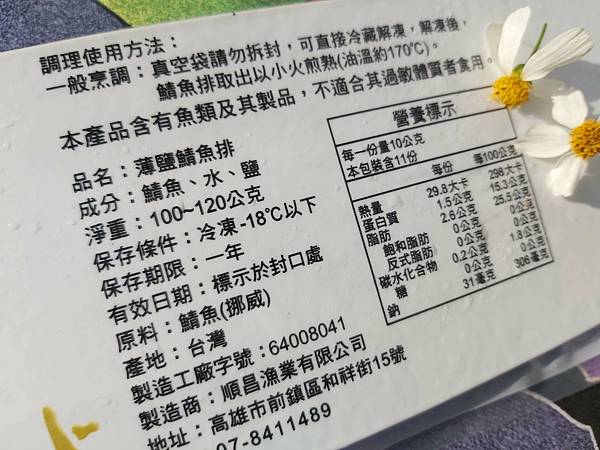 調理使用方法：
一般烹調：真空袋請勿拆封，可直接冷藏解凍，解凍後，
鯖魚排取出以小火煎熟(油溫約170℃)。
本產品含有魚類及其製品，不適合其過敏體質者食用。
品名：薄鹽鯖魚排
成分：鯖魚、水、鹽
淨重：100~120公克
保存條件：冷凍-18℃以下
保存期限：一年
有效日期：標示於封口處
原料：鯖魚(挪威)
產地：台灣
製造工廠字號：64008041
製造商：順昌漁業有限公司
地址：高雄市前鎮區和祥街15號
07-8411489
營養標示
每一份量10公克
本包裝含11份
每份 每100公克
熱量 29.8大卡 298大卡
蛋白質 1.5公克 15.3公克
脂肪 2.6公克 25.5公克
飽和脂肪 0公克 0公克
反式脂肪 0公克 0公克
碳水化合物 0.2公克 1.8公克
糖 0公克 0公克
鈉 31毫克 306毫克